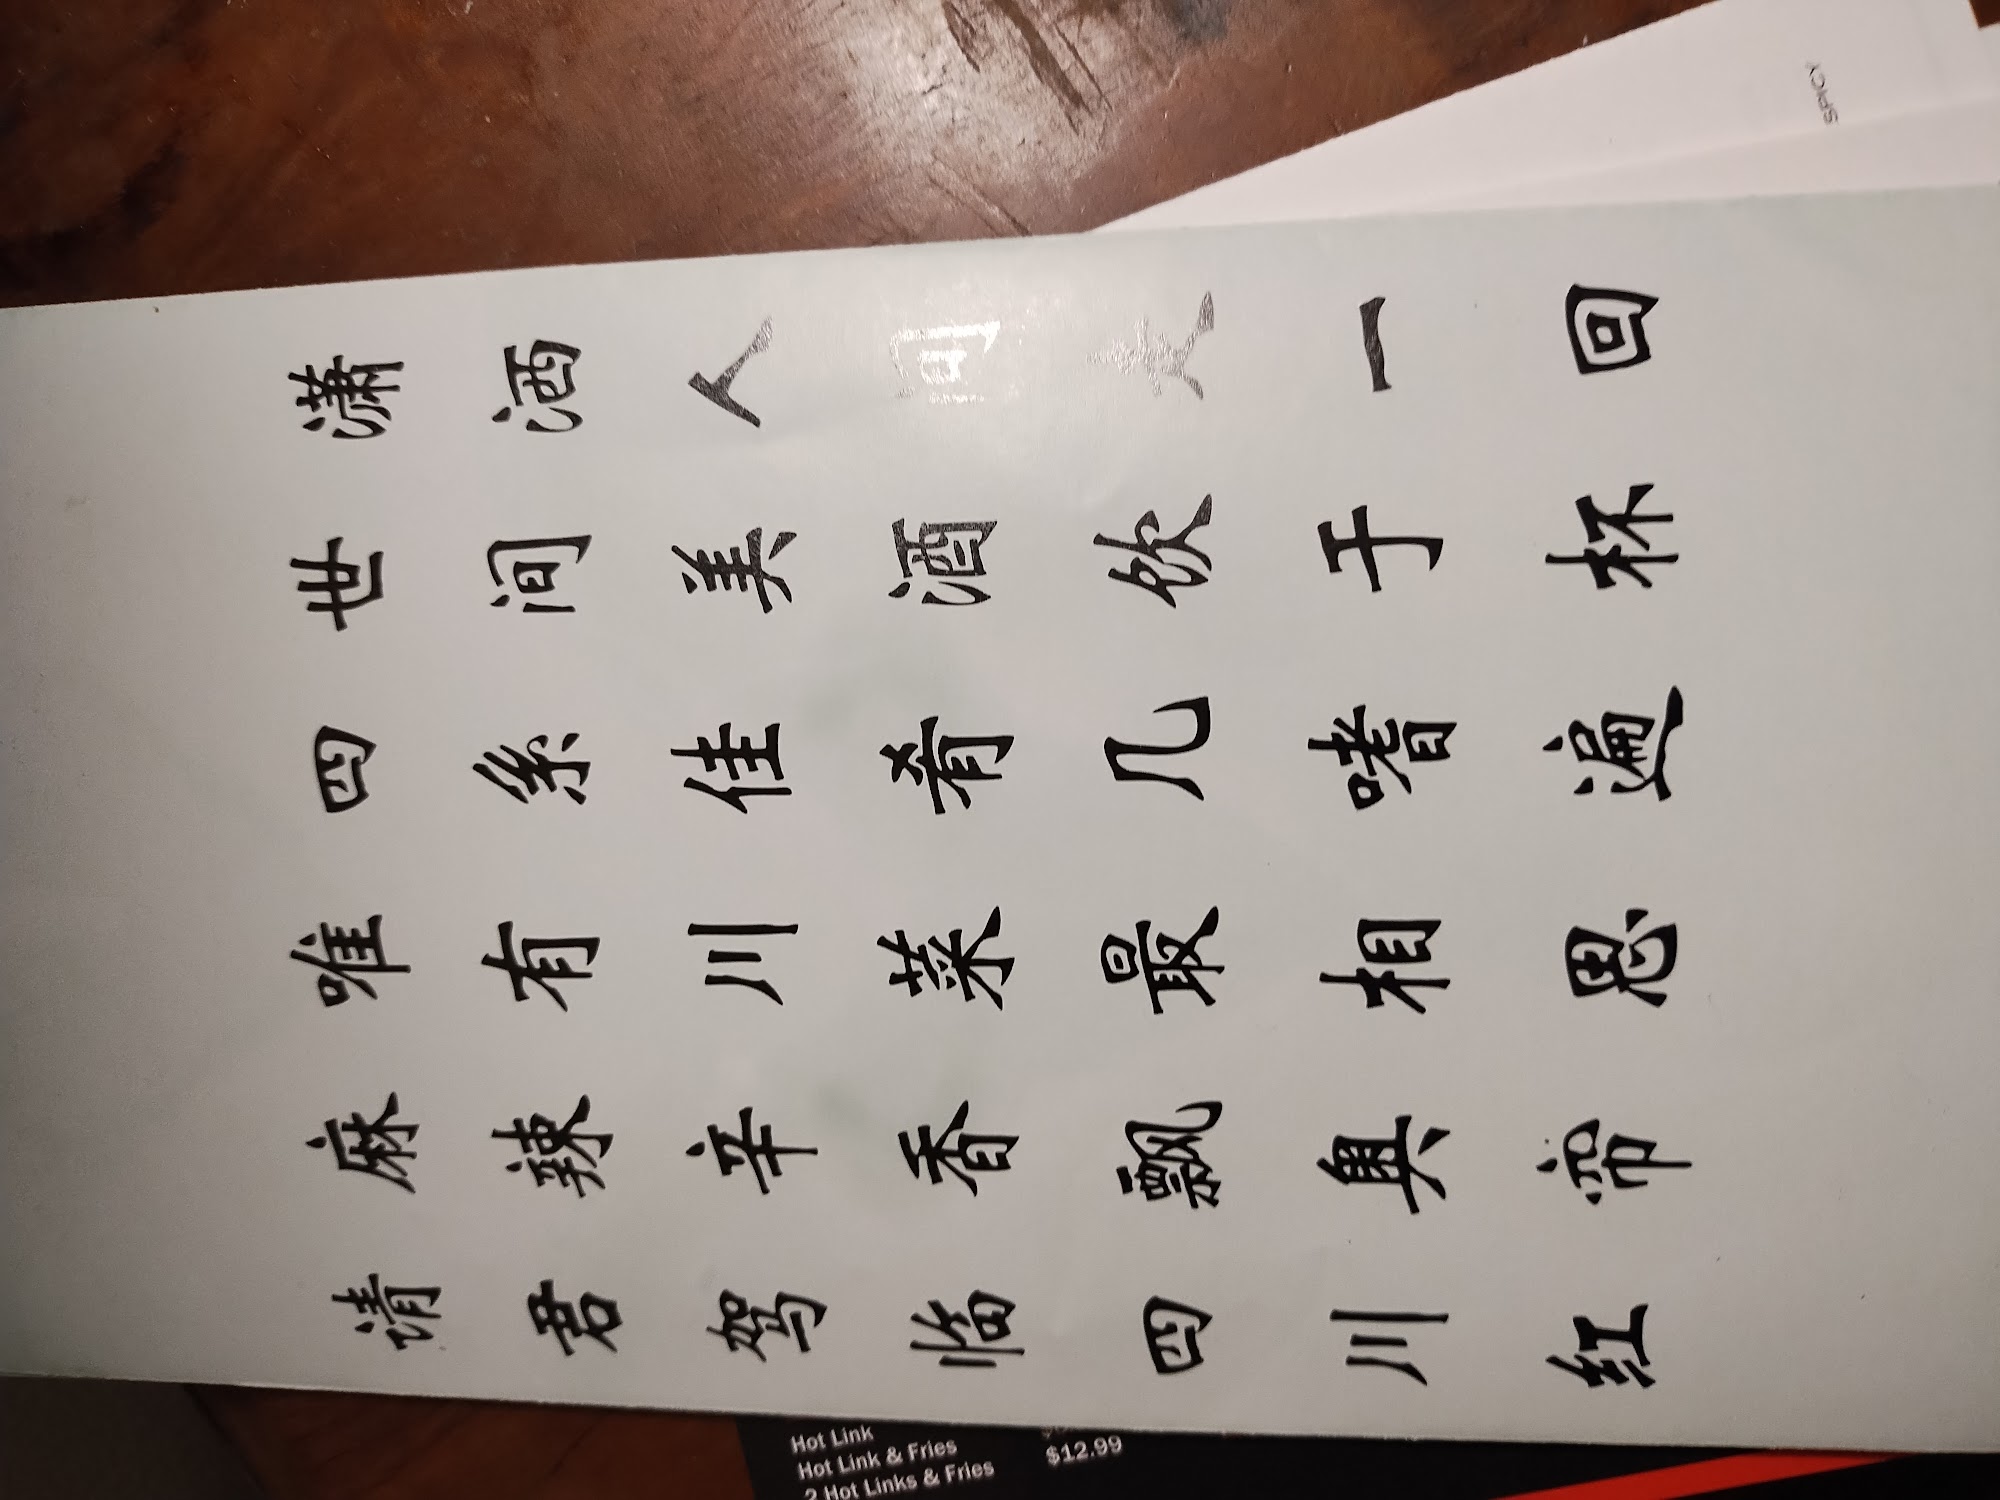 潇洒人间走一回
世间美酒饮千杯
四系佳肴几嗜遍
唯有川菜最相思
麻辣辛香飘奥帝
请君驾临四川红
SPICY
Hot Link
Hot Link & Fries $12.99
2 Hot Links & Fries